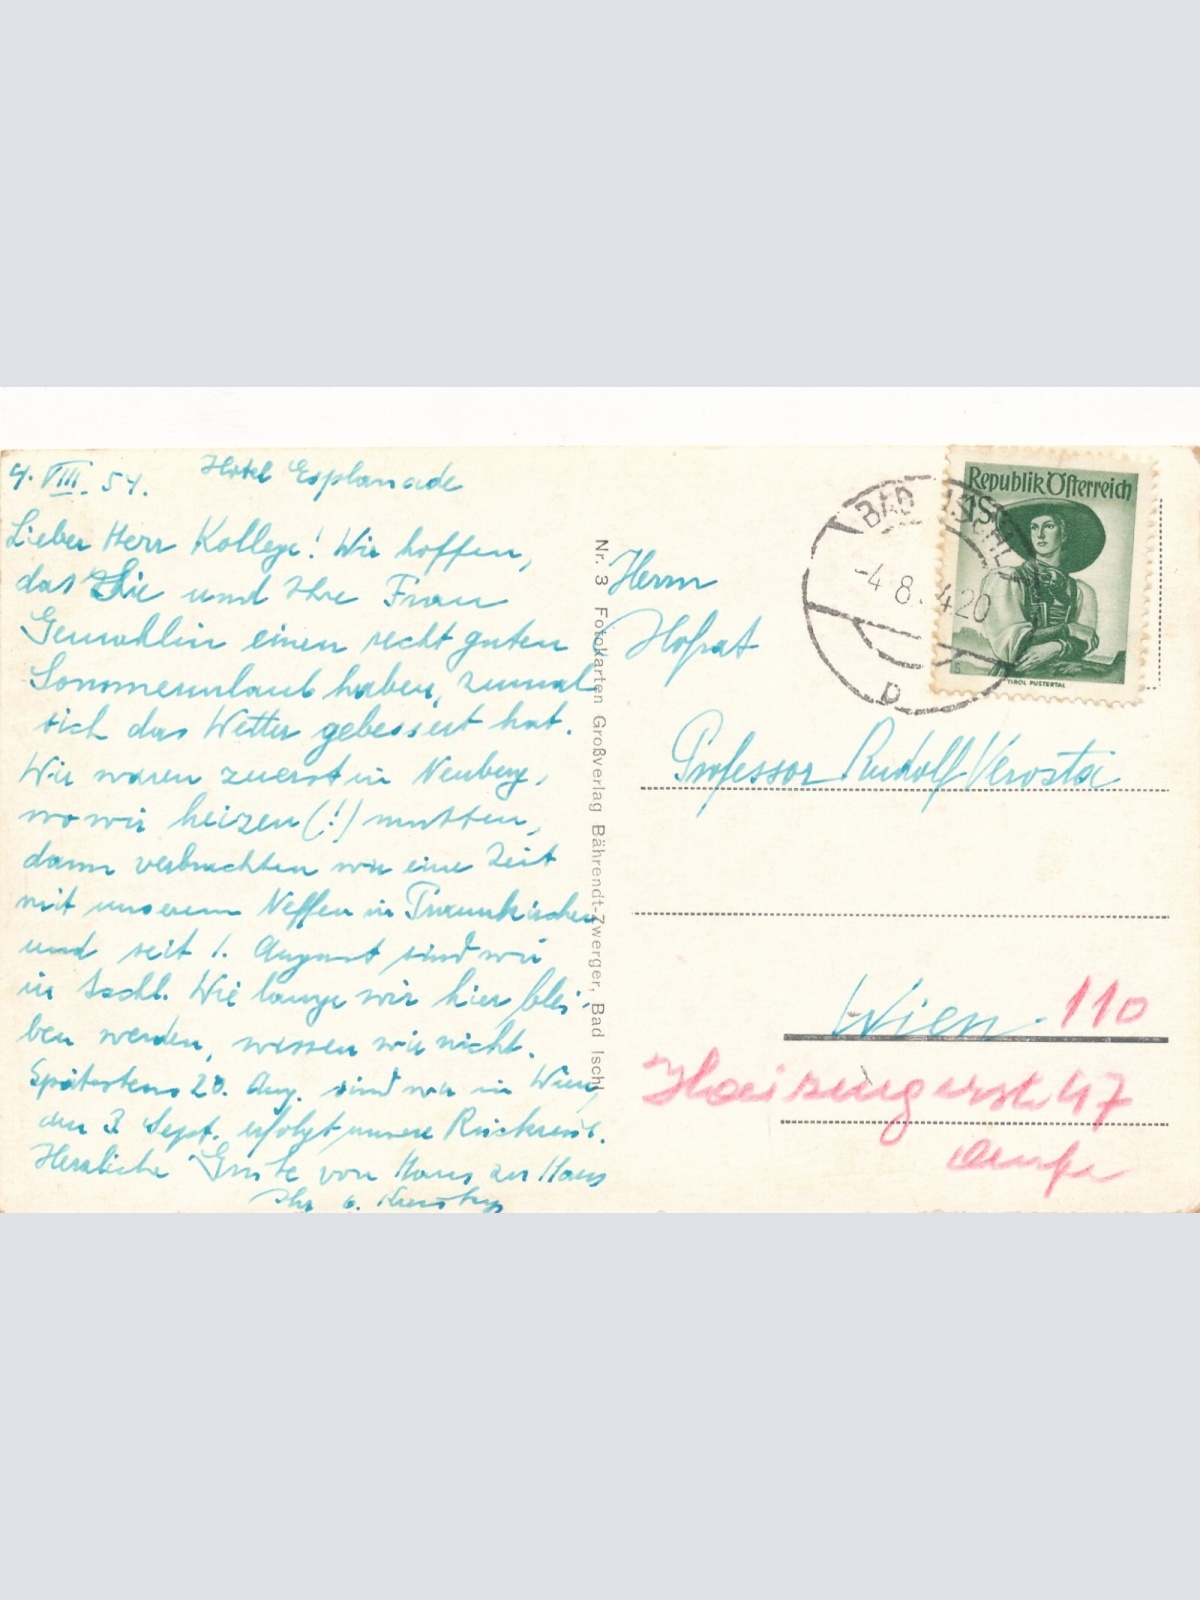 4. VIII. 54. Hotel Esplanade
Lieber Herr Kollege! Wir hoffen,
das Sie und Ihre Frau
Gemahlin einen recht guten
Sommerurlaub haben, zumal
sich das Wetter gebessert hat.
Wir waren zuerst in Neuberg,
wo wir heizen (!) mußten,
dann verbrachten wir eine Zeit
mit unserem Neffen in Traunkirchen
und seit 1. August sind wir
in Ischl. Wie lange wir hier blei-
ben werden, wissen wir nicht.
Spätestens 28. Aug. sind wir in Wien,
am 3. Sept. erfolgt unsere Rückreise.
Herzliche Grüße von Haus zu Haus
Ihr
Nr. 3 Fotokarten Großverlag Bährendt-Zwerger, Bad Ischl
BAD ISCHL
-4.8.54 20
D
Republik Österreich
1S
TIROL PUSTERTAL
Herrn
Hofrat
Professor Rudolf Verosta
Wien 110
Haizingerstr 47